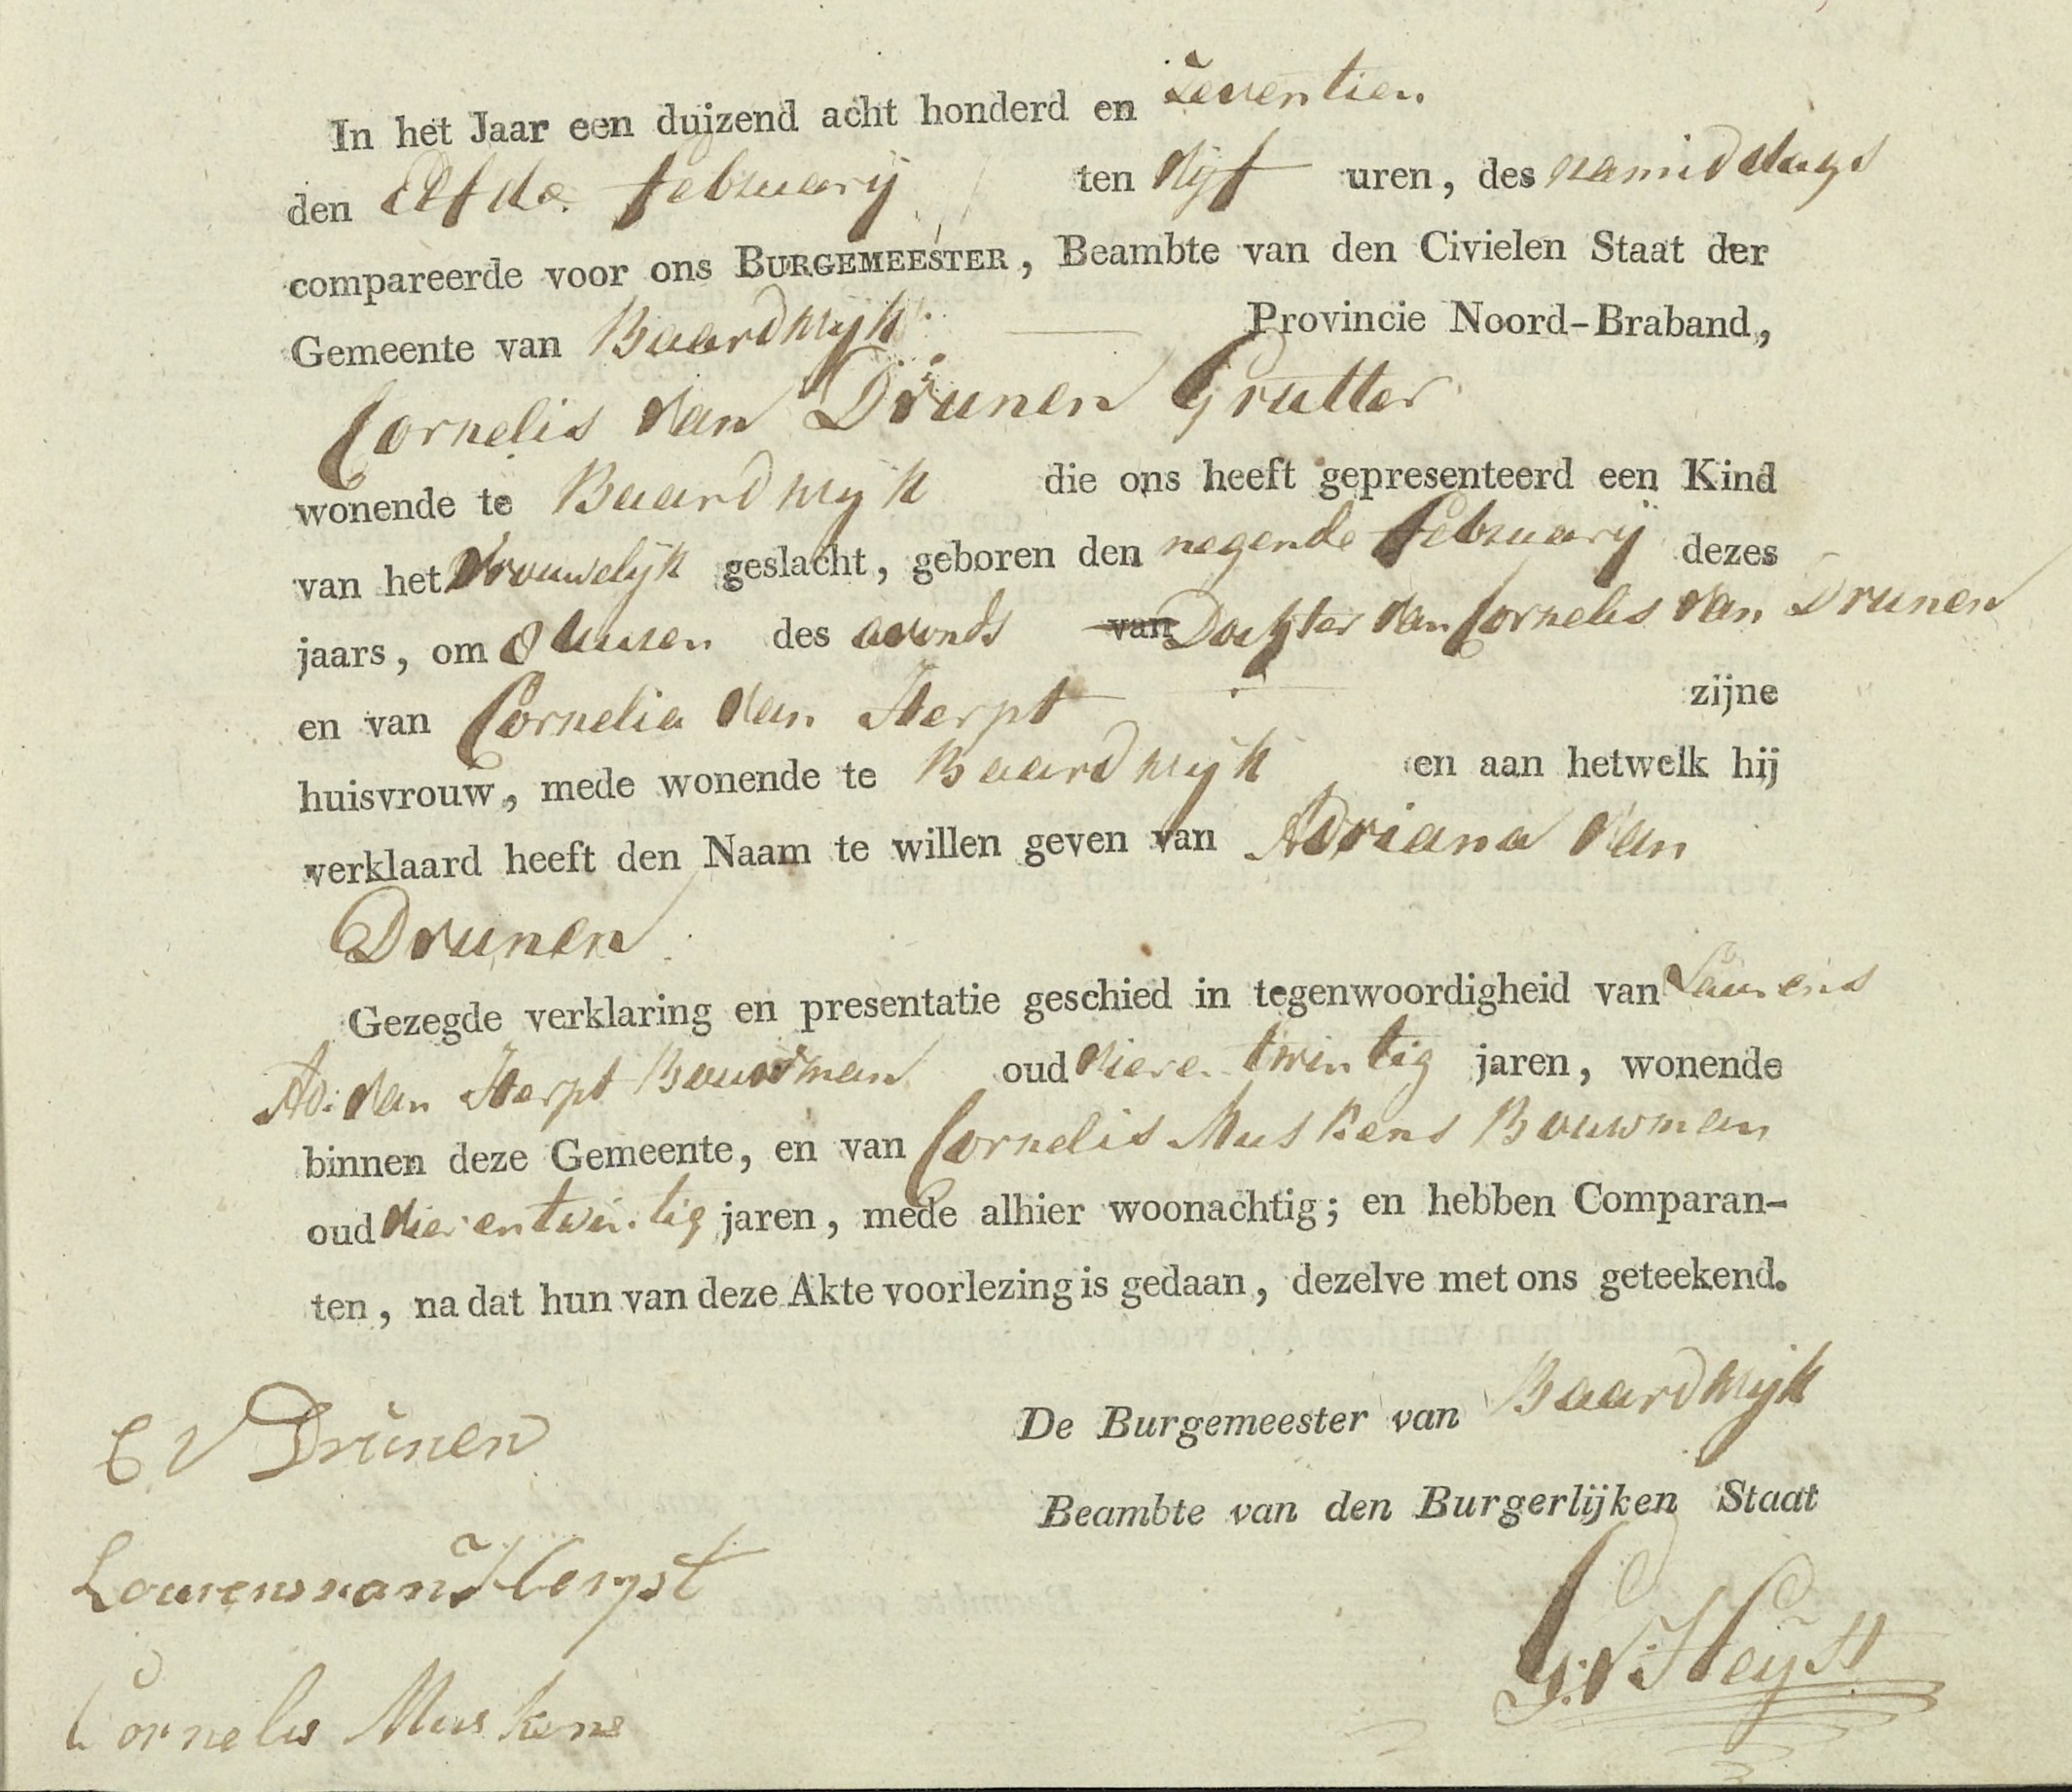 In het Jaar een duizend acht honderd en Zeventien
den Elfde february ten vyf uren, des namiddags
compareerde voor ons BURGEMEESTER, Beambte van den Civielen Staat der
Gemeente van Baardwyk Provincie Noord-Braband,
Cornelis van Drunen Grutter
wonende te Baardwyk die ons heeft gepresenteerd een Kind
van het Vrouwelyk geslacht, geboren den negende february dezes
jaars, om 8 uuren des avonds van Dochter van Cornelis van Drunen
en van Cornelia van Herpt zijne
huisvrouw, mede wonende te Baardwyk en aan hetwelk hij
verklaard heeft den Naam te willen geven van Adriana van
Drunen
Gezegde verklaring en presentatie geschied in tegenwoordigheid van Laurens
Ad: van Herpt Bouwman oud vieren twintig jaren, wonende
binnen deze Gemeente, en van Cornelis Muskens Bouwman
oud vierentwintig jaren, mede alhier woonachtig; en hebben Comparan-
ten, na dat hun van deze Akte voorlezing is gedaan, dezelve met ons geteekend.
De Burgemeester van Baardwyk
C V Drunen
Beambte van den Burgerlijken Staat
Lourens van Herpt
G: V Heyst
Cornelis Muskens